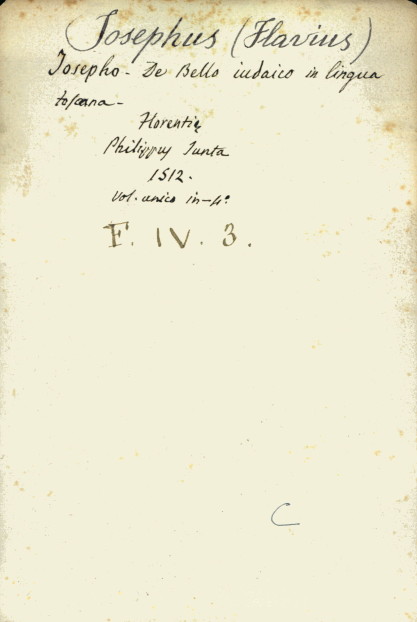 (Josephus (Flavius)
Josepho - De Bello iudaico in lingua
toscana -
Florentię
Philippus Junta
1512.
vol. unico in-4º
F. IV. 3.
C